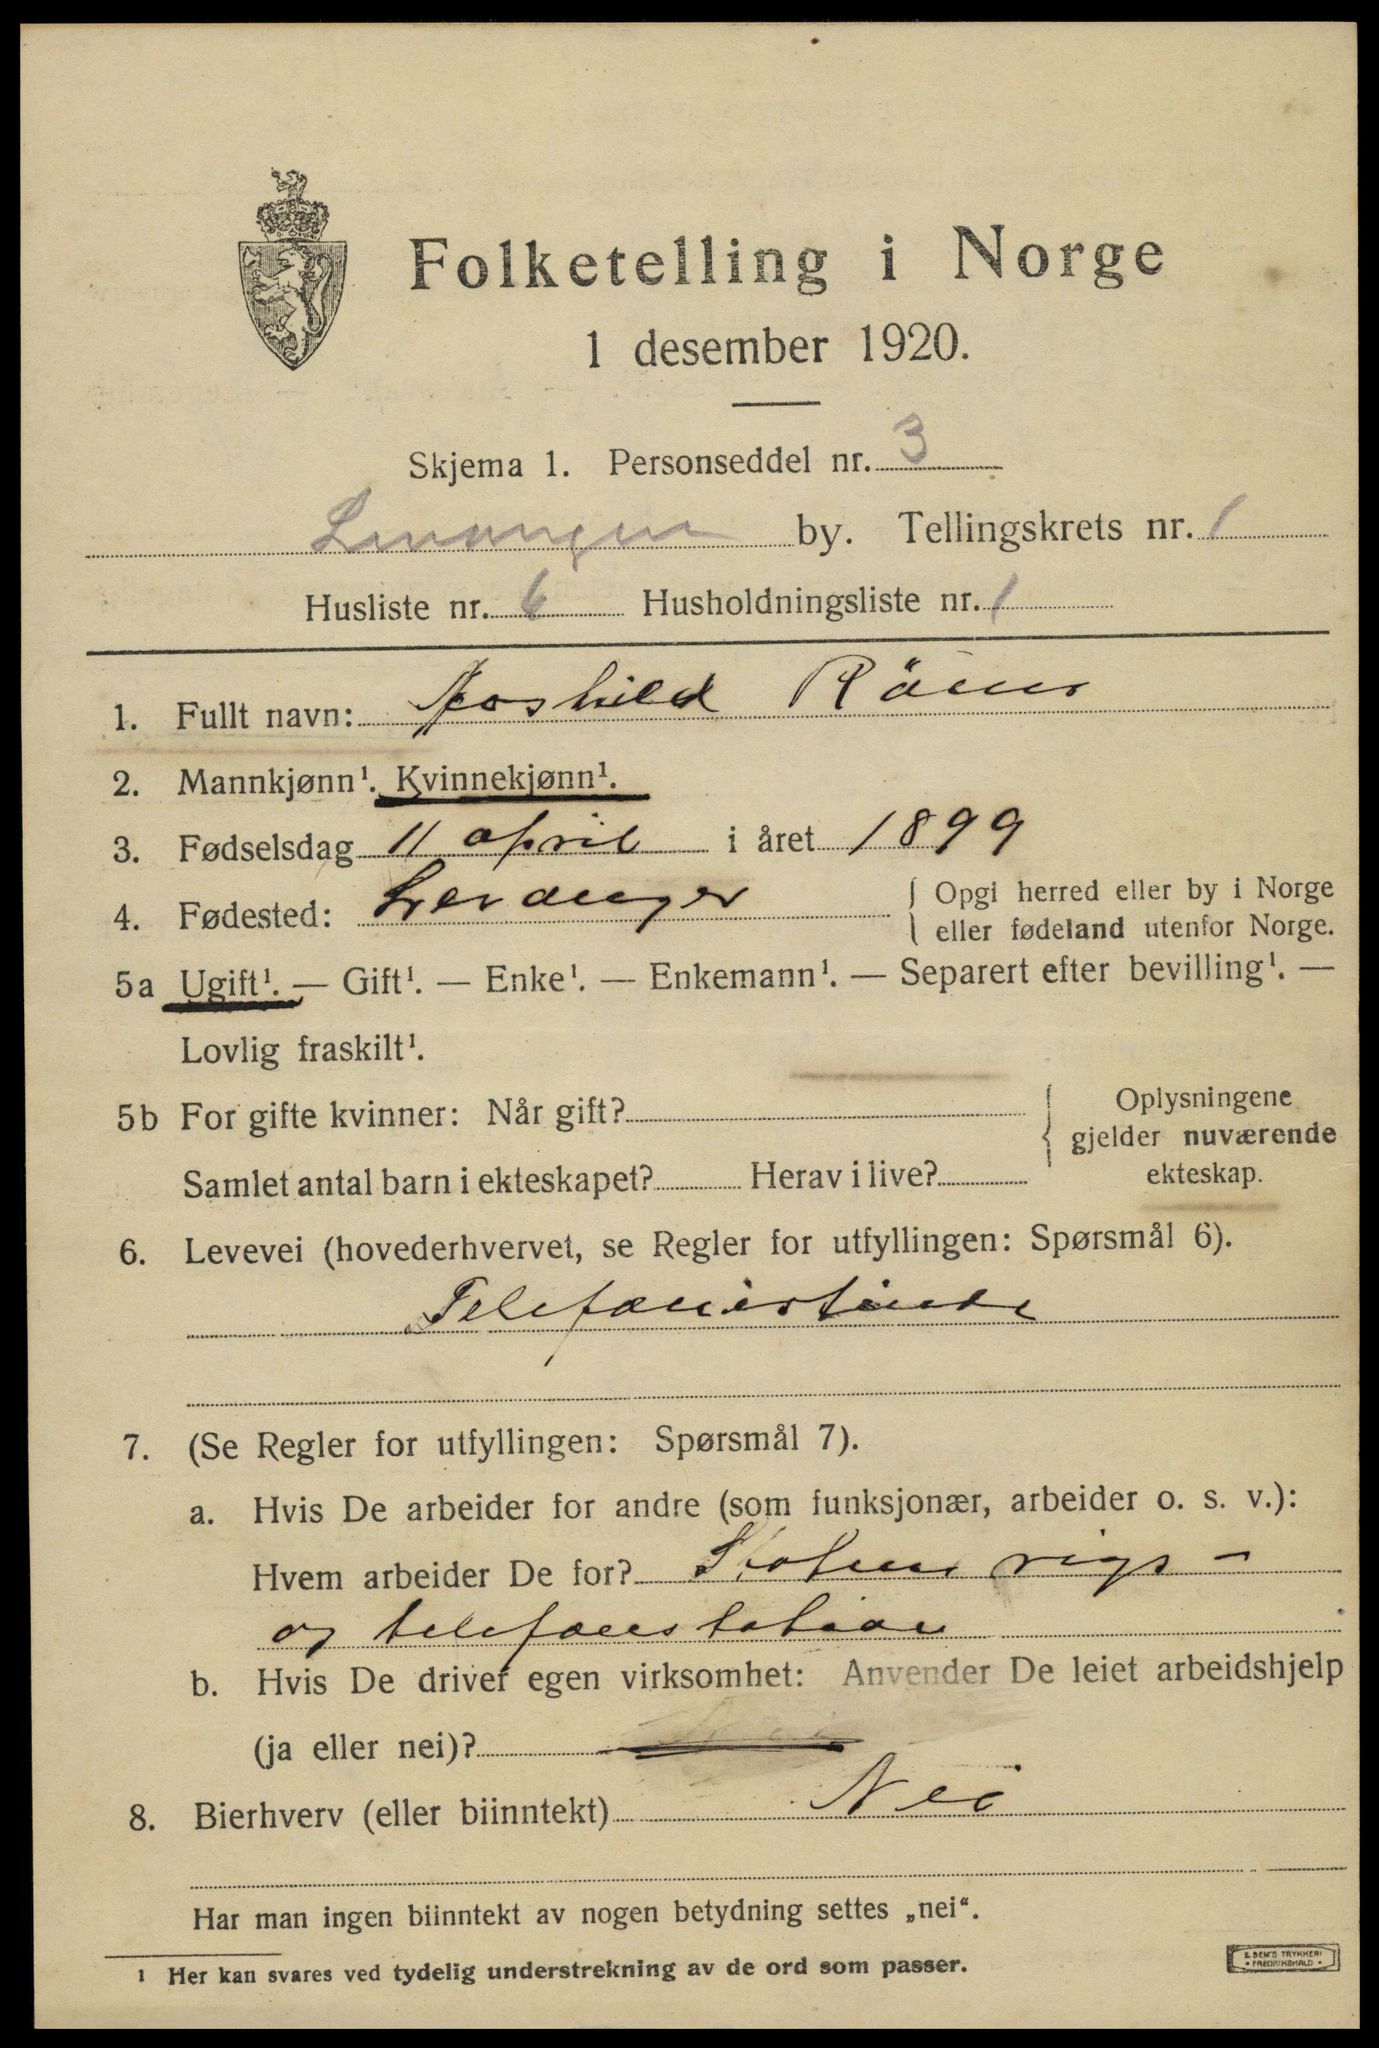 Folketelling i Norge
1 desember 1920.
Skjema 1. Personseddel nr. 3
Levanger by. Tellingskrets nr. 1
Husliste nr. 6 Husholdningsliste nr. 1
1. Fullt navn: Aashild
2. Mannkjønn¹. Kvinnekjønn¹.
3. Fødselsdag 11 april i året 1899
4. Fødested: Levanger { Opgi herred eller by i Norge
eller fødeland utenfor Norge.
5a Ugift¹. — Gift¹. — Enke¹. — Enkemann¹. — Separert efter bevilling¹. —
Lovlig fraskilt¹.
5b For gifte kvinner: Når gift?
Samlet antal barn i ekteskapet? Herav i live?
{ Oplysningene
gjelder nuværende
ekteskap.
6. Levevei (hovederhvervet, se Regler for utfyllingen: Spørsmål 6).
Telefonistinde
7. (Se Regler for utfyllingen: Spørsmål 7).
a. Hvis De arbeider for andre (som funksjonær, arbeider o. s. v.):
Hvem arbeider De for? Statens rigs-
og telefonstation
b. Hvis De driver egen virksomhet: Anvender De leiet arbeidshjelp
(ja eller nei)?
8. Bierhverv (eller biinntekt) Nei
Har man ingen biinntekt av nogen betydning settes „nei“.
¹ Her kan svares ved tydelig understrekning av de ord som passer.
E. SEM'S TRYKKERI
• FREDRIKSHALD •